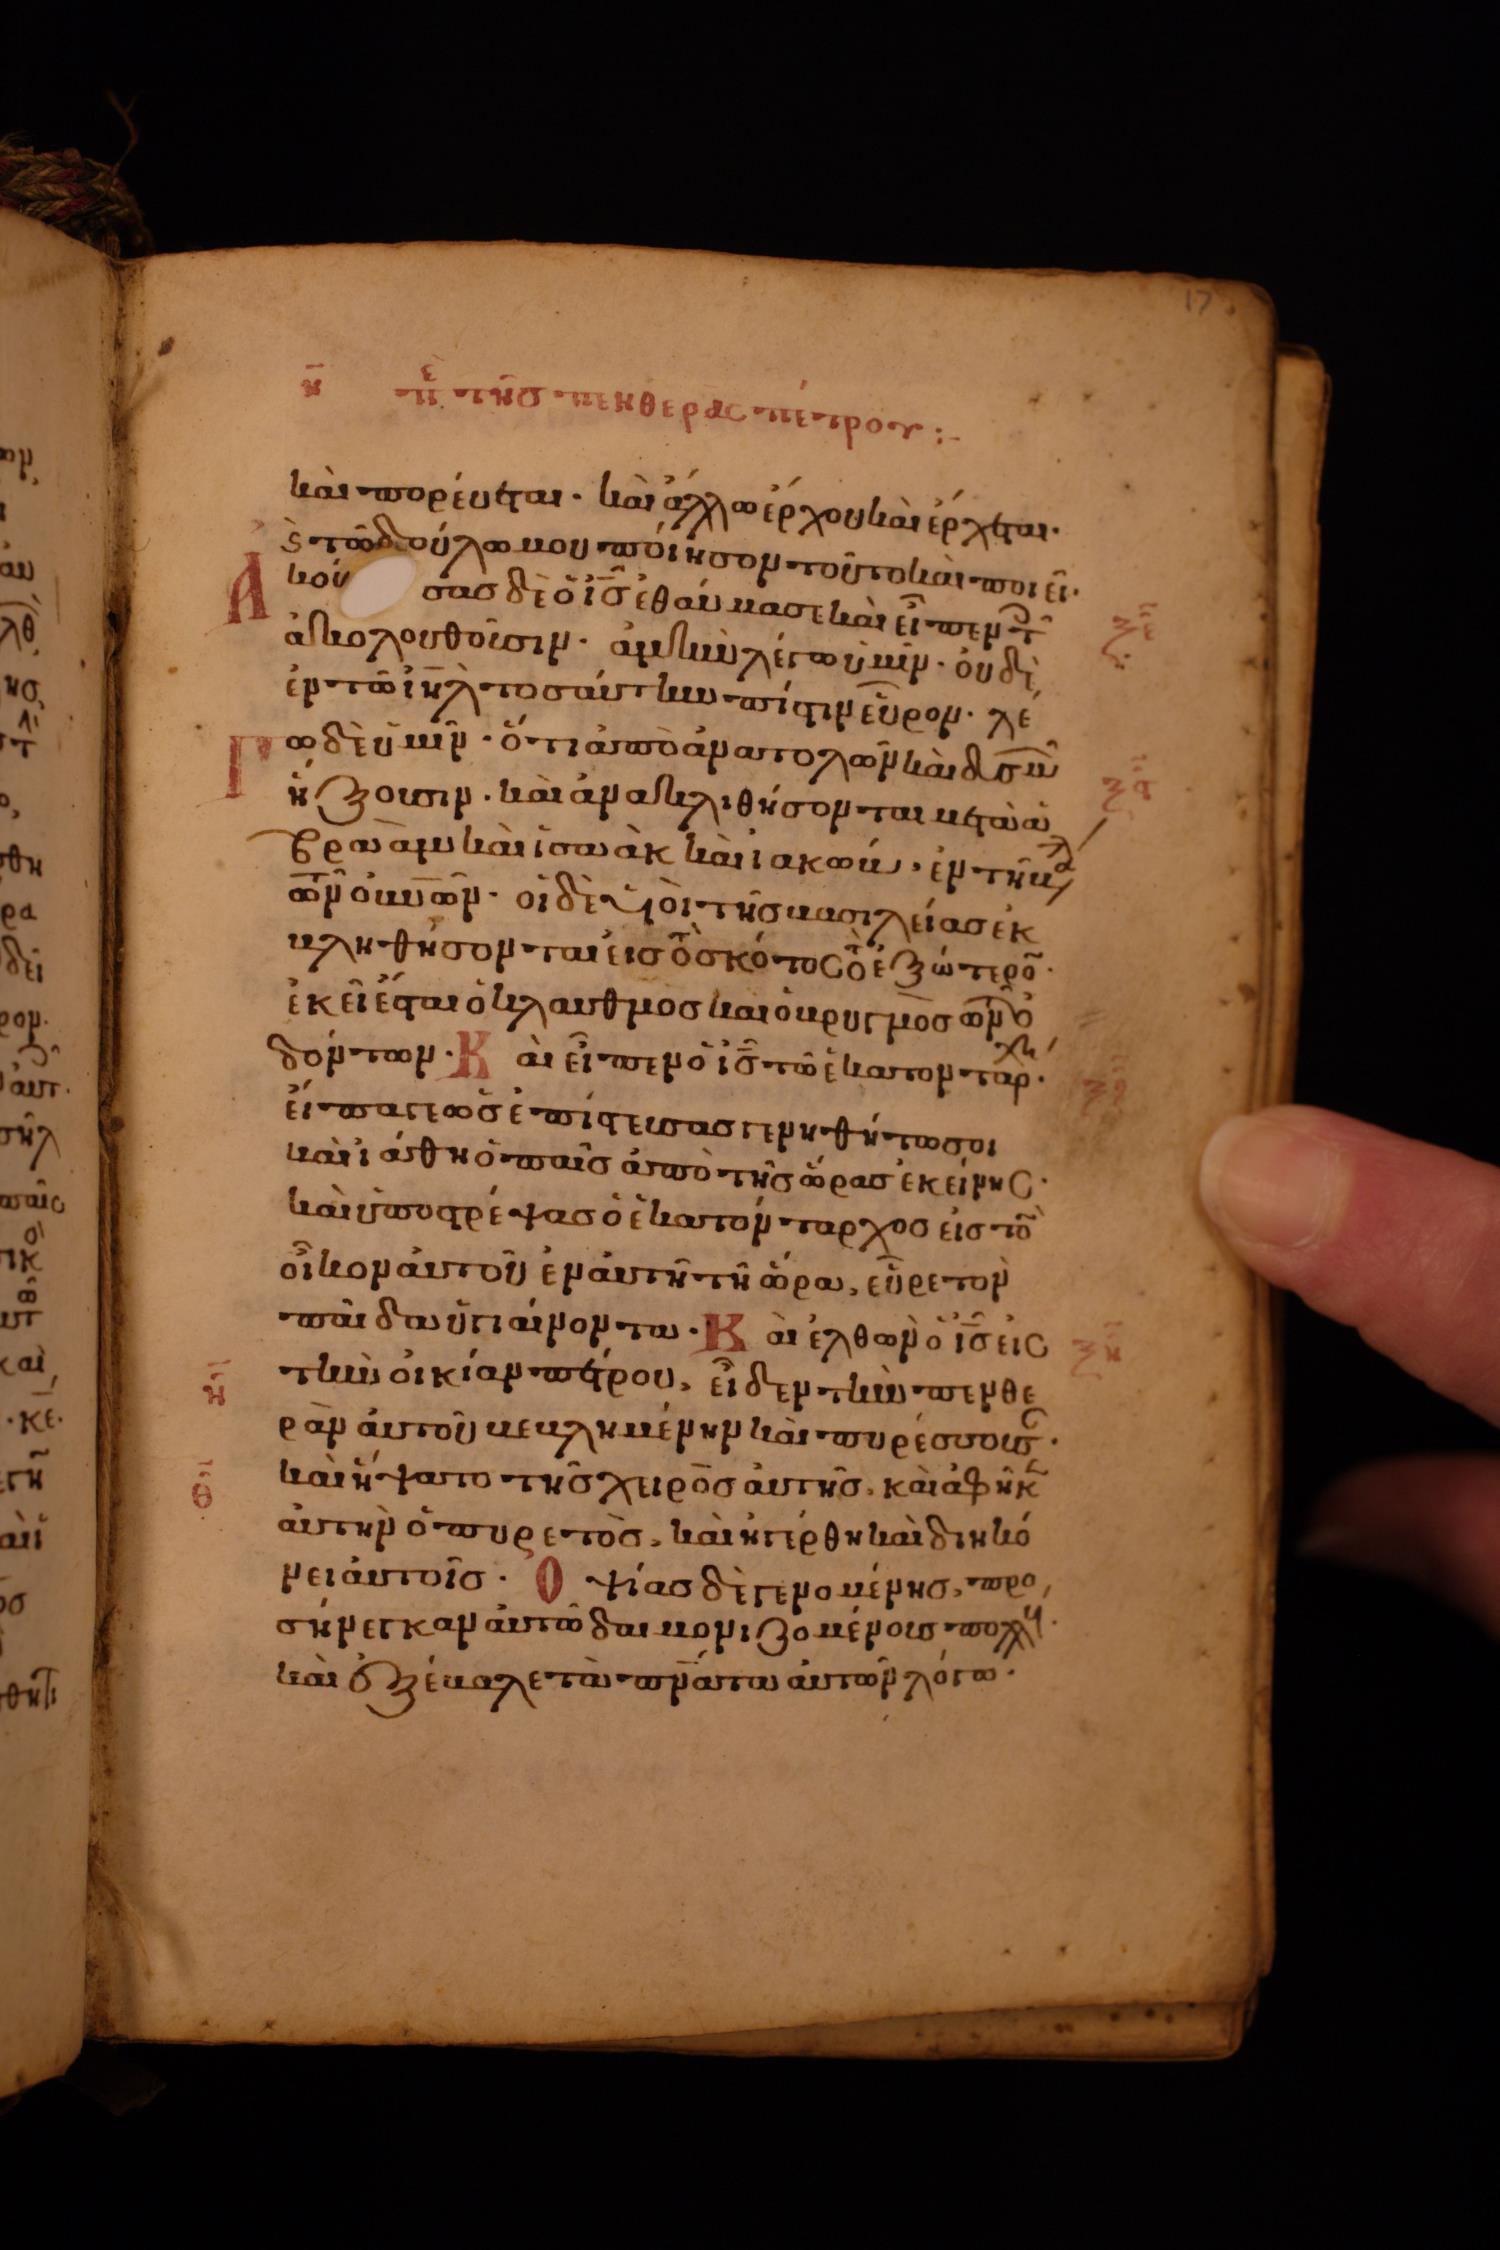 17
η̄ περὶ τῆς πενθερᾶς πέτρου :-
καὶ πορεύεται· καὶ ἄλλω ἔρχου καὶ ἔρχεται·
ϗ τῶ δούλω μου ποίησον τοῦτο καὶ ποιεῖ·
Ἀκούσας δὲ ὁ ις̄ ἐθαύμασε καὶ εἶπεν τ
ἀκολουθοῦσιν· ἀμὴν λέγω ὑμῖν· οὐδὲ
ἐν τῶ ιηλ̄ τοσαύτην πίστιν εὗρον· λέ
Γω δὲ ὑμῖν· ὅτι ἀπὸ ἀνατολῶν καὶ δυσμῶν
ἥξουσιν· καὶ ἀνακλιθήσονται μετὰ ἀ
βραὰμ καὶ ἰσαὰκ καὶ ἰακώβ· ἐν τῆ βα
τῶν οὐνῶν· οἱ δὲ υἱοὶ τῆς βασιλείας ἐκ
βληθήσονται εἰς τὸ σκότος τὸ ἐξώτερο̄·
ἐκεῖ ἔσται ὁ κλαυθμὸς καὶ ὁ βρυγμὸς τῶν ὀ
δόντων· Καὶ εἶπεν ὁ ις̄ τῶ ἑκατοντάρχη·
ὕπαγε ὡς ἐπίστευσας γενηθήτω σοι
καὶ ἰάθη ὁ παῖς ἀπὸ τῆς ὥρας ἐκείνης·
καὶ ὑποστρέψας ὁ ἑκατόνταρχος εἰς τὸ̄
οἶκον αὐτοῦ ἐν αὐτῆ τῆ ὥρα, εὗρε τὸν
παῖδα ὑγιαίνοντα· Καὶ ἐλθὼν ὁ ις̄ εἰς
τὴν οἰκίαν πέτρου, εἶδεν τὴν πενθε
ρὰν αὐτοῦ βεβλημένην καὶ πυρέσσουσ·
καὶ ἥψατο τῆς χειρὸς αὐτῆς, καὶ ἀφῆκ
αὐτὴν ὁ πυρετὸς, καὶ ἠγέρθη καὶ διηκό
νει αὐτοῖς· Ὀψίας δὲ γενομένης, προ
σήνεγκαν αὐτῶ δαιμονιζομένους πολλ·
καὶ ἐξέβαλε τὰ πνάτα αὐτῶν λόγω·